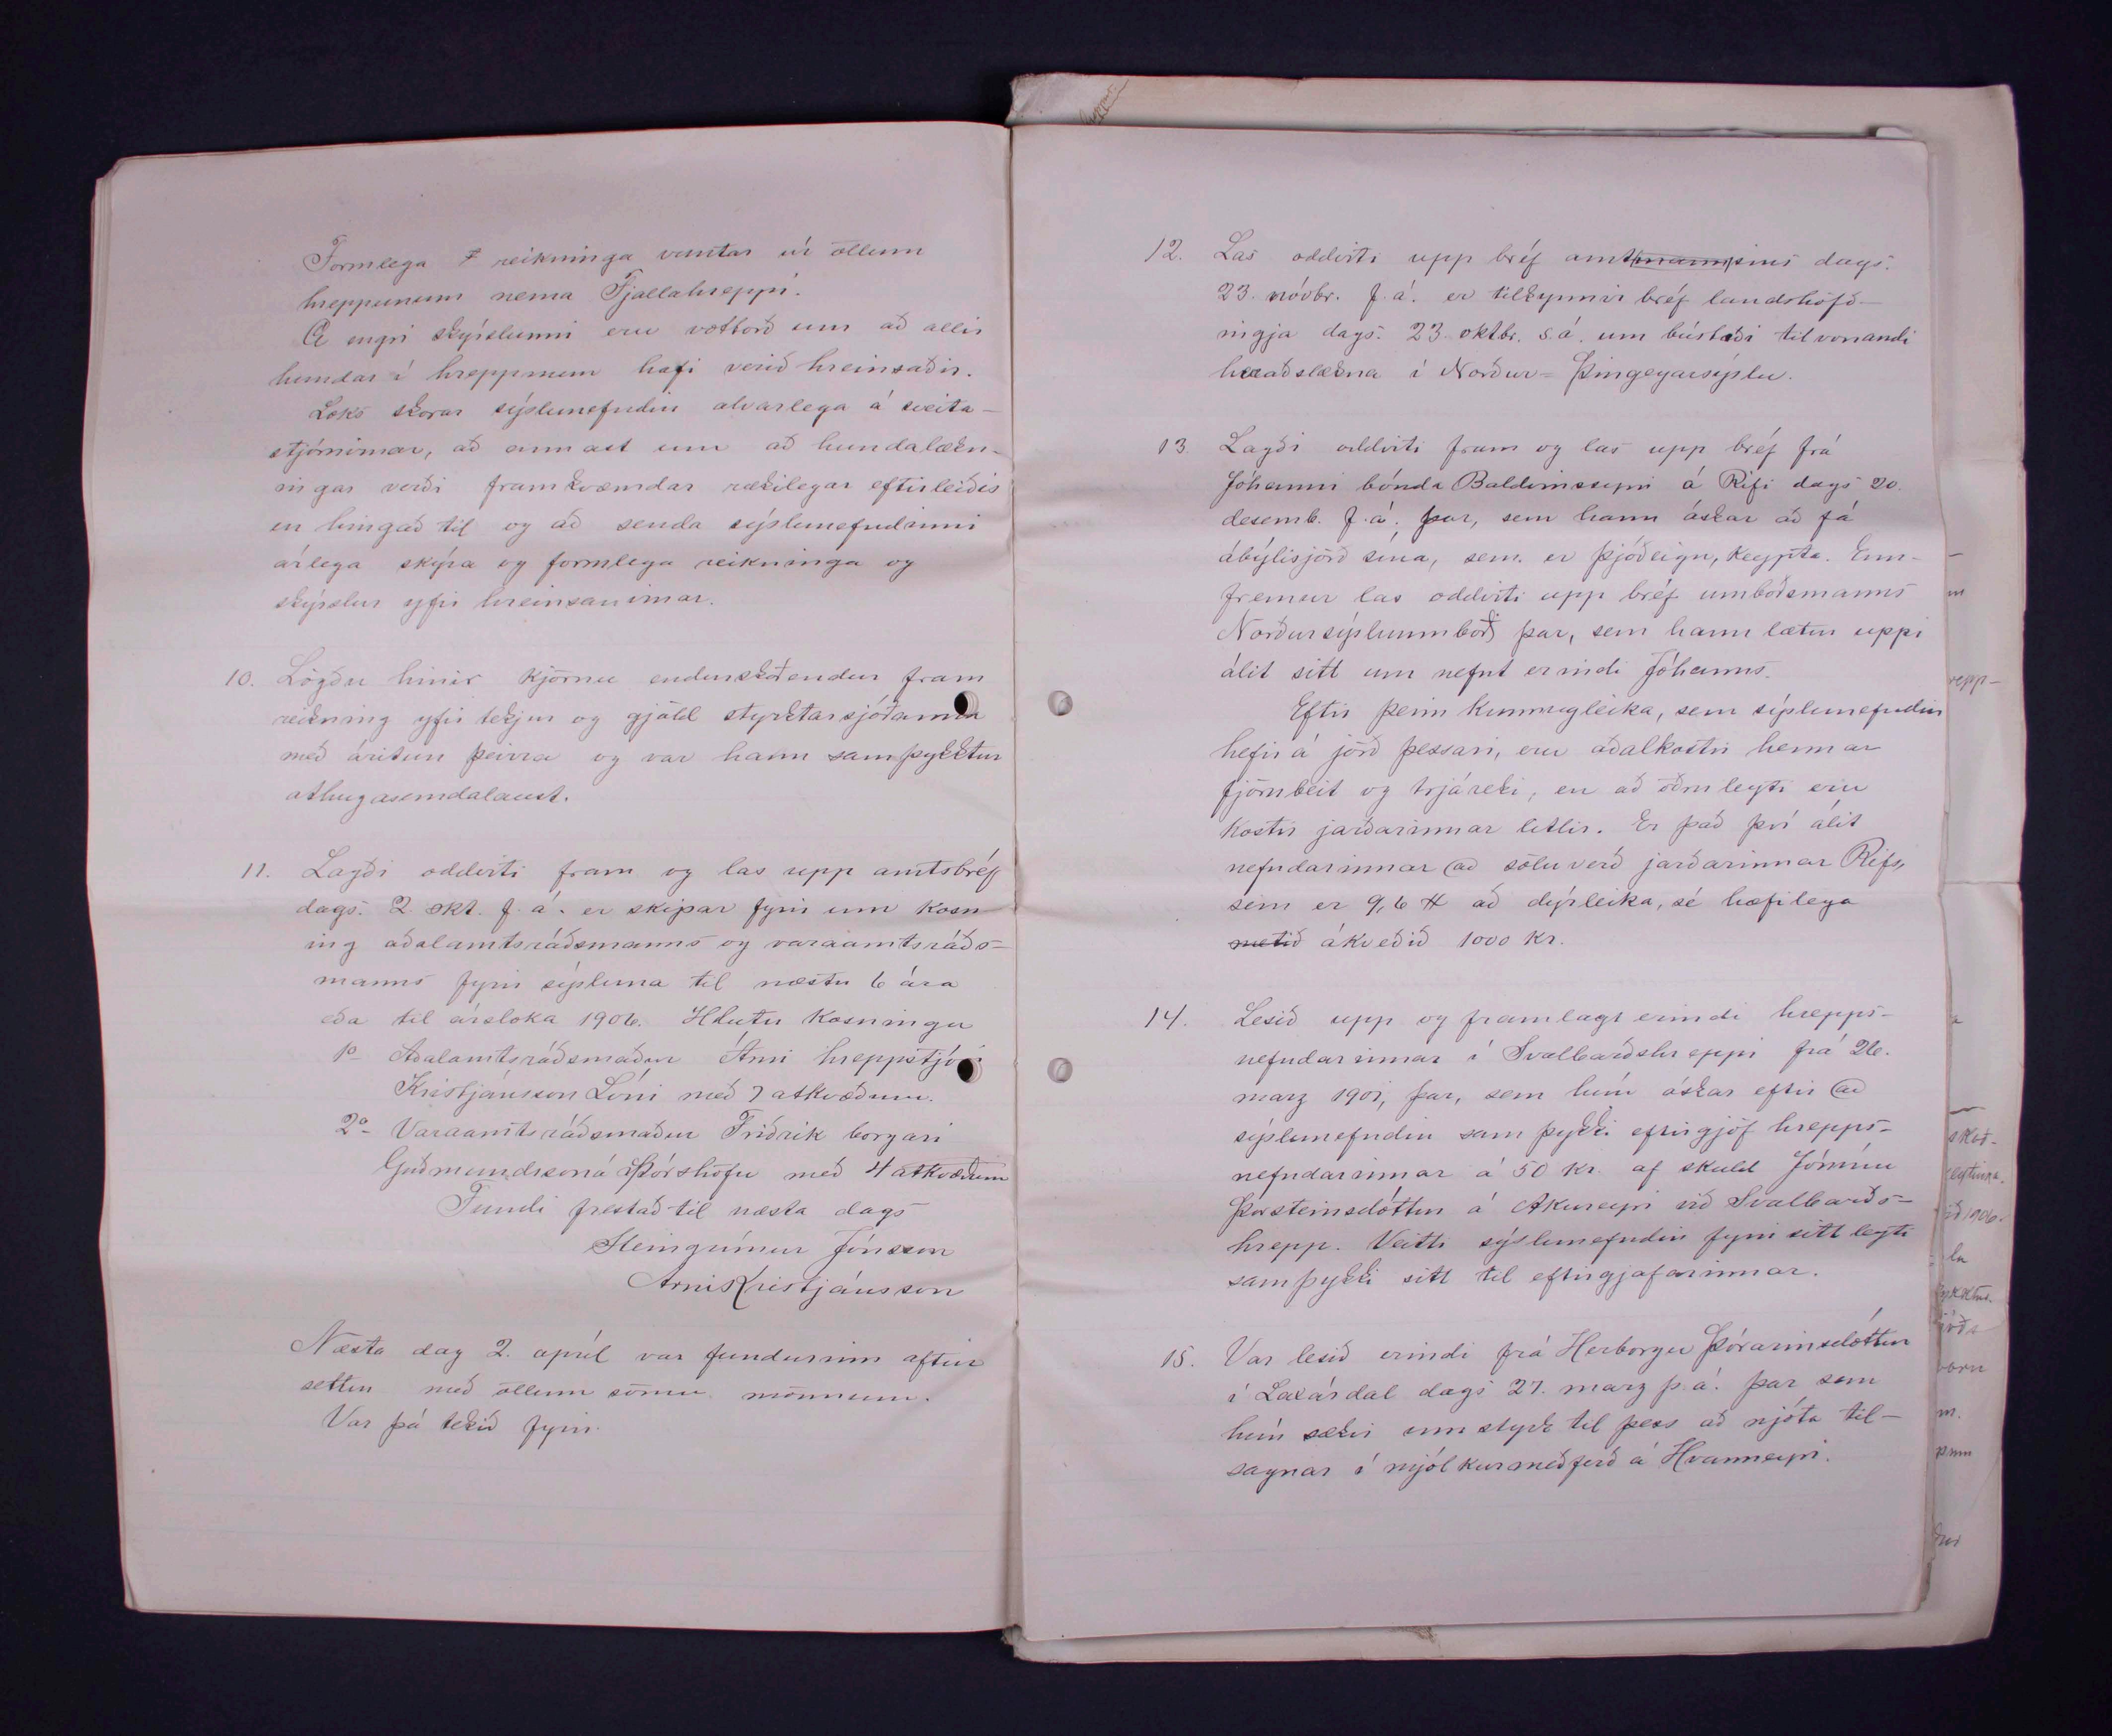 Formlega reikninga vantar úr öllum
hreppunum nema Fjallahreppi.
Á engri skýrslunni eru vottorð um að allir
hundar í hreppnum hafi verið hreinsaðir.
Loks skorar sýslunefndin alvarlega á sveita-
stjórnirnar, að annast um að hundalækn-
ingar verði framkvæmdar rækilegar eftirleiðis
en hingað til og að senda sýslunefndinni
árlega skýra og formlega reikninga og
skýrslur yfir hreinsanirnar.
10. Lögðu hinir kjörnu endurskoðendur fram
reikning yfir tekjur og gjöld styrktarsjóðanna
með áritun þeirra og var hann samþykktur
athugasemdalaust.
11. Lagði oddviti fram og las upp amtsbréf
dags. 2. okt. f. á. er skipar fyrir um kosn-
ing aðalamtsráðsmanns og varaamtsráðs-
manns fyrir sýsluna til næstu 6 ára
eða til ársloka 1906. Hlutu kosningu
1o Aðalamtsráðsmaður Árni hreppstjóri
Kristjánsson Lóni með 7 atkvæðum.
2o Varaamtsráðsmaður Friðrik borgari
Guðmundsson á Þórshöfn með 4 atkvæðum
Fundi frestað til næsta dags
Steingrímur Jónsson
Arni Kristjánsson
Næsta dag 2. apríl var fundurinn aftur
settur með öllum sömu mönnum.
Var þá tekið fyrir.
12. Las oddviti upp bréf amtmannsins dags.
23. nóvbr. f. á. er tilkynnir bréf landshöfð-
ingja dags. 23. oktbr. s. á. um bústaði tilvonandi
heraðslækna í Norður-Þingeyarsýslu.
13. Lagði oddviti fram og las upp bréf frá
Jóhanni bónda Baldvinssyni á Rifi dags 20.
desemb. f. á. þar, sem hann óskar að fá
ábýlisjörð sína, sem er þjóðeign, keypta. Enn-
fremur las oddviti upp bréf umboðsmanns
Norðursýsluumboðs þar, sem hann lætur uppi
álit sitt um nefnt erindi Jóhanns.
Eftir þeim kunnugleika, sem sýslunefndin
hefir á jörð þessari, eru aðalkostir hennar
fjörubeit og trjáreki, en að öðru leyti eru
kostir jarðarinnar litlir. Er það því álit
nefndarinnar að söluverð jarðarinnar Rifs,
sem er 9,6 H að dýrleika, sé hæfilega
metið ákveðið 1000 kr.
14. Lesið upp og framlagt erindi hrepps-
nefndarinnar í Svalbarðshreppi frá 26.
marz 1901, þar, sem hún óskar eftir að
sýslunefndin samþykki eftirgjöf hrepps-
nefndarinnar á 50 kr. af skuld Jónínu
Þorsteinsdóttur á Akureyri við Svalbarðs-
hrepp. Veitti sýslunefndin fyrir sitt leyti
samþykki sitt til eftirgjafarinnar.
15. Var lesið erindi frá Herborgu Þórarinsdóttur
í Laxárdal dags 27. marz þ. á. þar sem
hún sækir um styrk til þess að njóta til-
sagnar í mjólkurmeðferð á Hvanneyri.